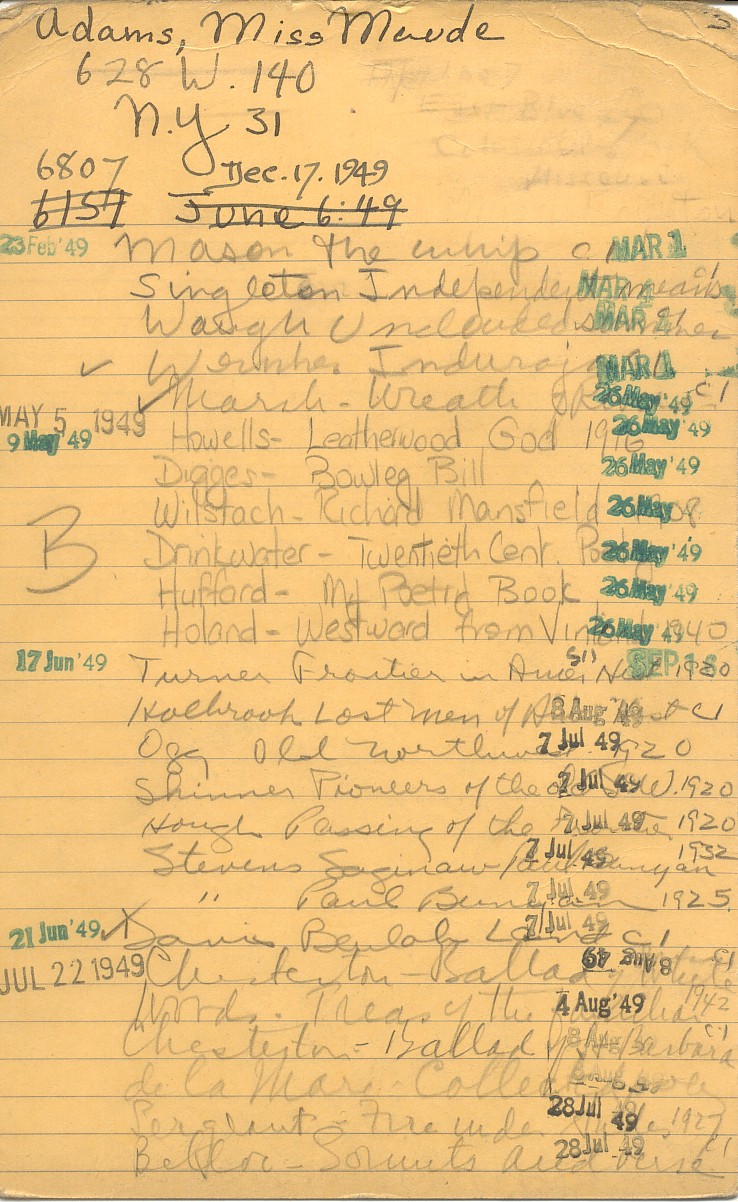 Adams, Miss Maude
628 W. 140
N.Y 31
6807 Dec. 17. 1949
6157 June 6:49
23 Feb '49 Mason The whip c1 MAR 1
Singleton Independent means MAR
Waugh Unclouded summer MAR
Wernher MAR 1
Marsh - Wreath 26 May '49 c1
MAY 5 1949
9 May '49 Howells - Leatherwood God 1916 26 May '49
Digges - Bowleg Bill 26 May '49
Wilstach - Richard Mansfield 1908 26 May '49
B Drinkwater - Twentieth Cent. 26 May '49
Hufford - My Poetry Book 26 May '49
Holand - Westward from Vinland 1940 26 May '49
17 Jun '49 Turner Frontier in Amer Hist 1920 SEP
Holbrook Lost Men of c1 8 Aug 49
Ogg Old Northwest 1920 7 Jul 49
Skinner Pioneers of the old S.W. 1920 7 Jul 49
Hough Passing of the Frontier 1920 7 Jul 49
Stevens Saginaw Paul Bunyan 1932 7 Jul 49
" Paul Bunyan 1925 7 Jul 49
21 Jun '49 Davis Beulah Land c1 7 Jul 49
JUL 22 1949 Chesterton - Ballad of White c1 8 Aug 49
Woods - Treas of the Familiar 1942 4 Aug '49
Chesterton - Ballad of St Barbara c1 8 Aug
de la Mare - Collected
Sergeant - Fire under 1927 28 Jul 49
Belloc - Sonnets and verse c1 28 Jul 49